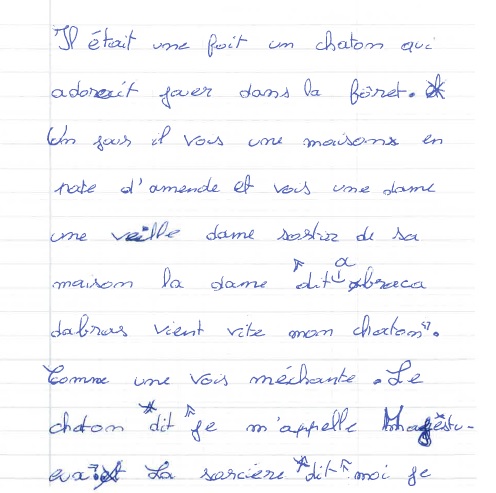 Il était une foit un chaton qui
adorait jouer dans la fôret.
Un jour il vois une maisons en
pate d'amende et vois une dame
une veille dame sortir de sa
maison la dame dit abraca
dabras vient vite mon chaton".
Comme une vois méchante. Le
chaton "dit" je m'appelle
La sorciere "dit" moi je